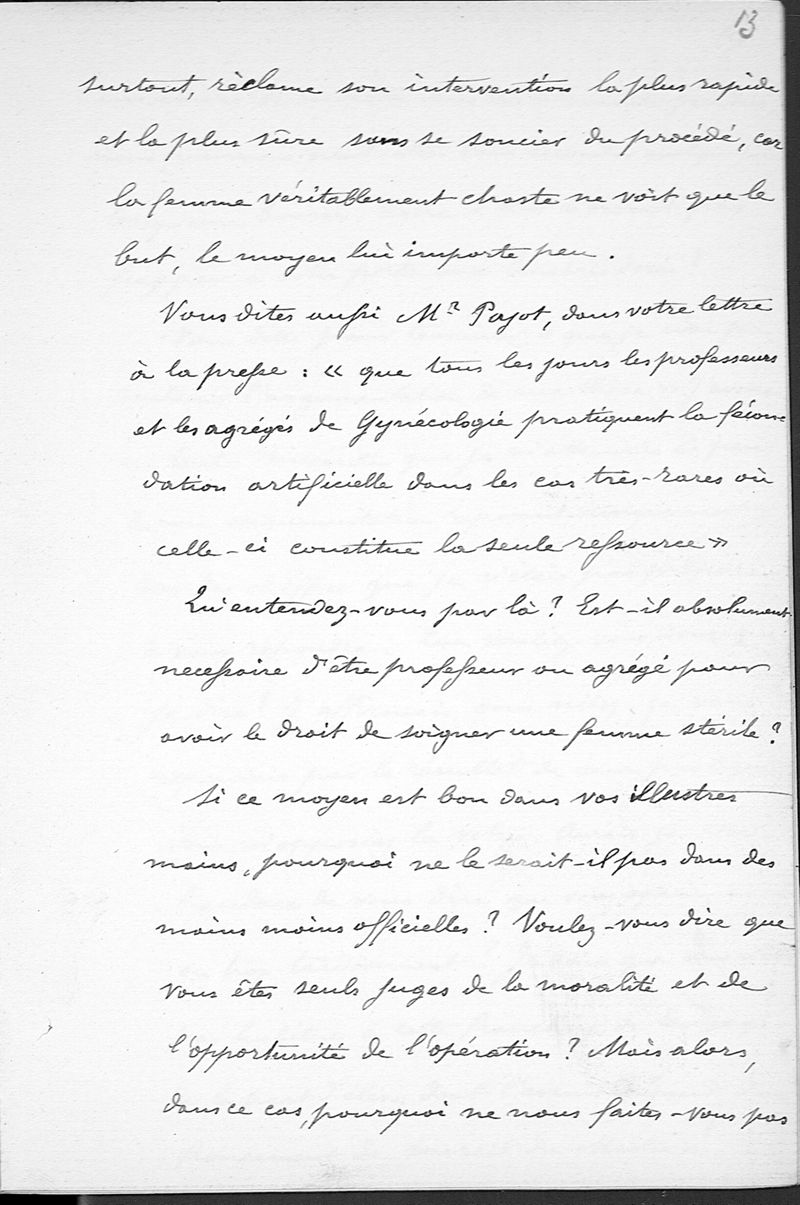 13
surtout, réclame son intervention la plus rapide
et la plus sûre sans se soucier du procédé, car
la femme véritablement chaste ne voit que le
but, le moyen lui importe peu.
Vous dites aussi Mr Pajot, dans votre lettre
à la presse : « que tous les jours les professeurs
et les agrégés de Gynécologie pratiquent la fécon-
dation artificielle dans les cas très-rares où
celle-ci constitue la seule ressource »
Qu'entendez-vous par là ? Est-il absolument
necessaire d'être professeur ou agrégé pour
avoir le droit de soigner une femme stérile ?
Si ce moyen est bon dans vos illustres
mains, pourquoi ne le serait-il pas dans des
mains moins officielles ? Voulez-vous dire que
vous êtes seuls juges de la moralité et de
l'opportunité de l'opération ? Mais alors,
dans ce cas, pourquoi ne nous faites-vous pas